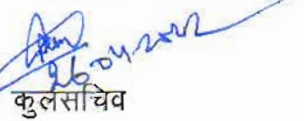 26.04.2022
कुलसचिव